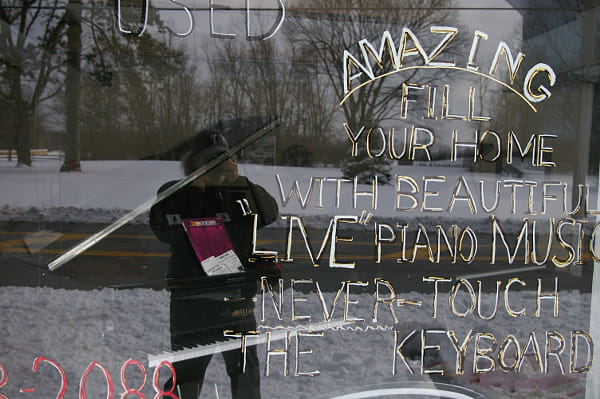 USED
AMAZING
FILL
YOUR HOME
WITH BEAUTIFUL
"LIVE" PIANO MUSIC
-NEVER-TOUCH
THE KEYBOARD
3-2088